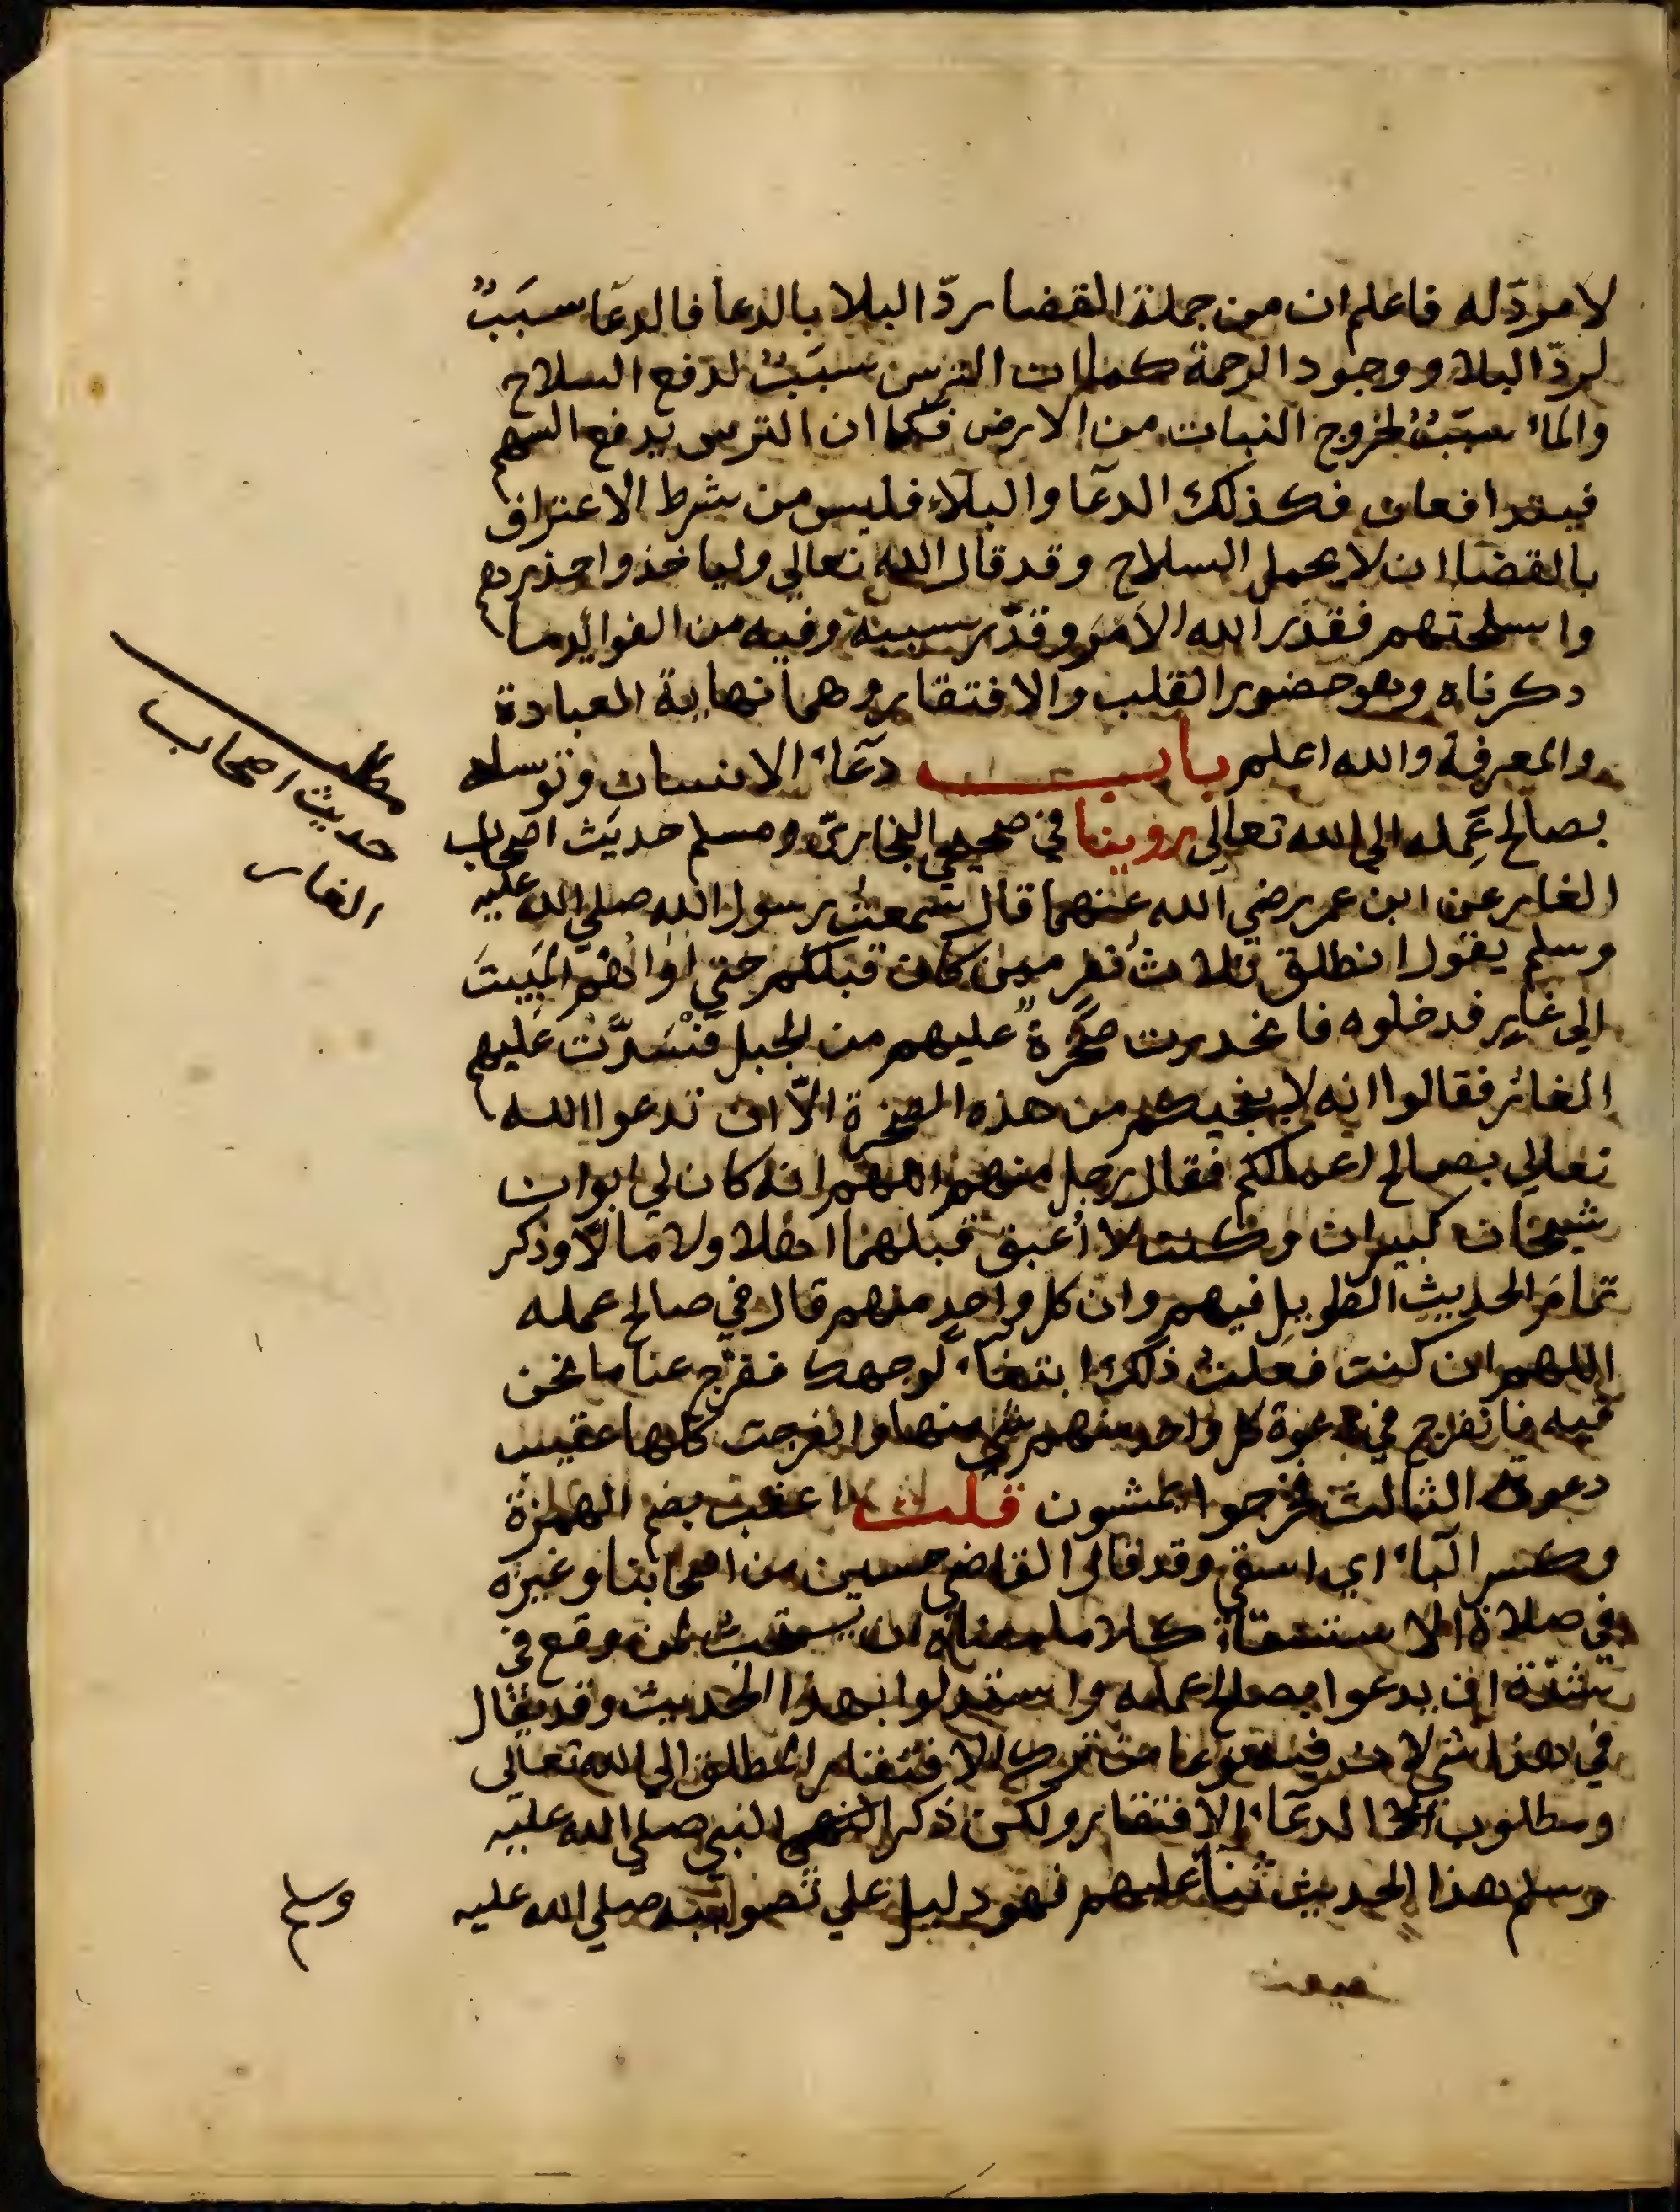 لا مردّ له فاعلم ان من جملة القضا ردّ البلا بالدعا فالدعَا سبَبٌ
لردّ البلا ووجود الرحمة كما ان الترس سبَبٌ لدفع السلاح
والماء سبَبٌ لخروج النبات من الارض فكما ان الترس يدفع السهم
فيتدافعان فكذلك الدعَا والبلاء فليس من شرط الاعتراف
بالقضا ان لا يحمل السلاح وقد قال الله تعالي ولياخذوا حذرهم
واسلحتهم فقدّر الله الامر وقدّر سببه وفيه من الفوائد ما
ذكرناه وهو حضور القلب والافتقار وهما نهاية العبادة
والمعرفة والله اعلم باب دعَاء الانسان وتوسله
بصالح عَمله الي الله تعالي روينا في صحيحي البخاري ومسلم حديث اصحاب
الغار عن ابن عمر رضي الله عنهما قال سمعت رسول الله صلي الله عليه
وسلم يقول انطلق ثلاث نفر ممن كان قبلكم حتي اواهم المَبيتَ
الي غار فدخلوه فانحدرت صخرةٌ عليهم من الجبل فَنْسَدَّت عليهم
الغار فقالوا انه لا ينجيكم من هذه الصخرة الّا ان تدعوا الله
تعالي بصالح اعمالكم فقال رجل منهم اللهم انه كان لي ابوان
شيخان كبيران وكنت لا أغبق قبلهما اهلا ولا مالا وذكر
تمامَ الحديث الطويل فيهم وان كل واحد منهم قال في صالح عمله
اللهم ان كنت فعلت ذلك ابتغاء لوجهك ففرّج عنا ما نحن
فيه فانفرج في دعوة كل واحد منهم شي منها وانفرجت كلها عقيب
دعوة الثالث فخرجوا يمشون قلت اغبق بضم الهمزة
وكسر الباء اي اسقي وقد قال القاضي حسين من اصحابنا وغيره
في صلاة الاستسقاء كلاما معناه ان يستحبّ لمن وقع في
شدّة ان يدعوا بصالح عمله واستدلوا بهذا الحديث وقد يقال
في هذا شي لان فيه نوعا من ترك الافتقار المطلق الي الله تعالي
ومطلوب الدعَاء الافتقار ولكن ذكر النبي صلي الله عليه
وسلم هذا الحديث ثنا عليهم فهو دليل علي تصوابه صلي الله عليه
حديث اصحاب
الغار
وسلم